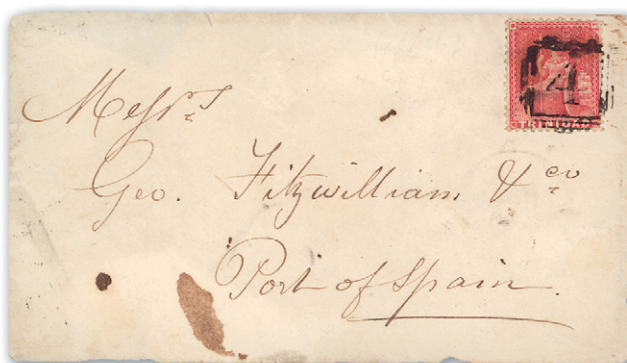 TRINIDAD
Messrs
Geo. Fitzwilliam & co
Port of Spain.